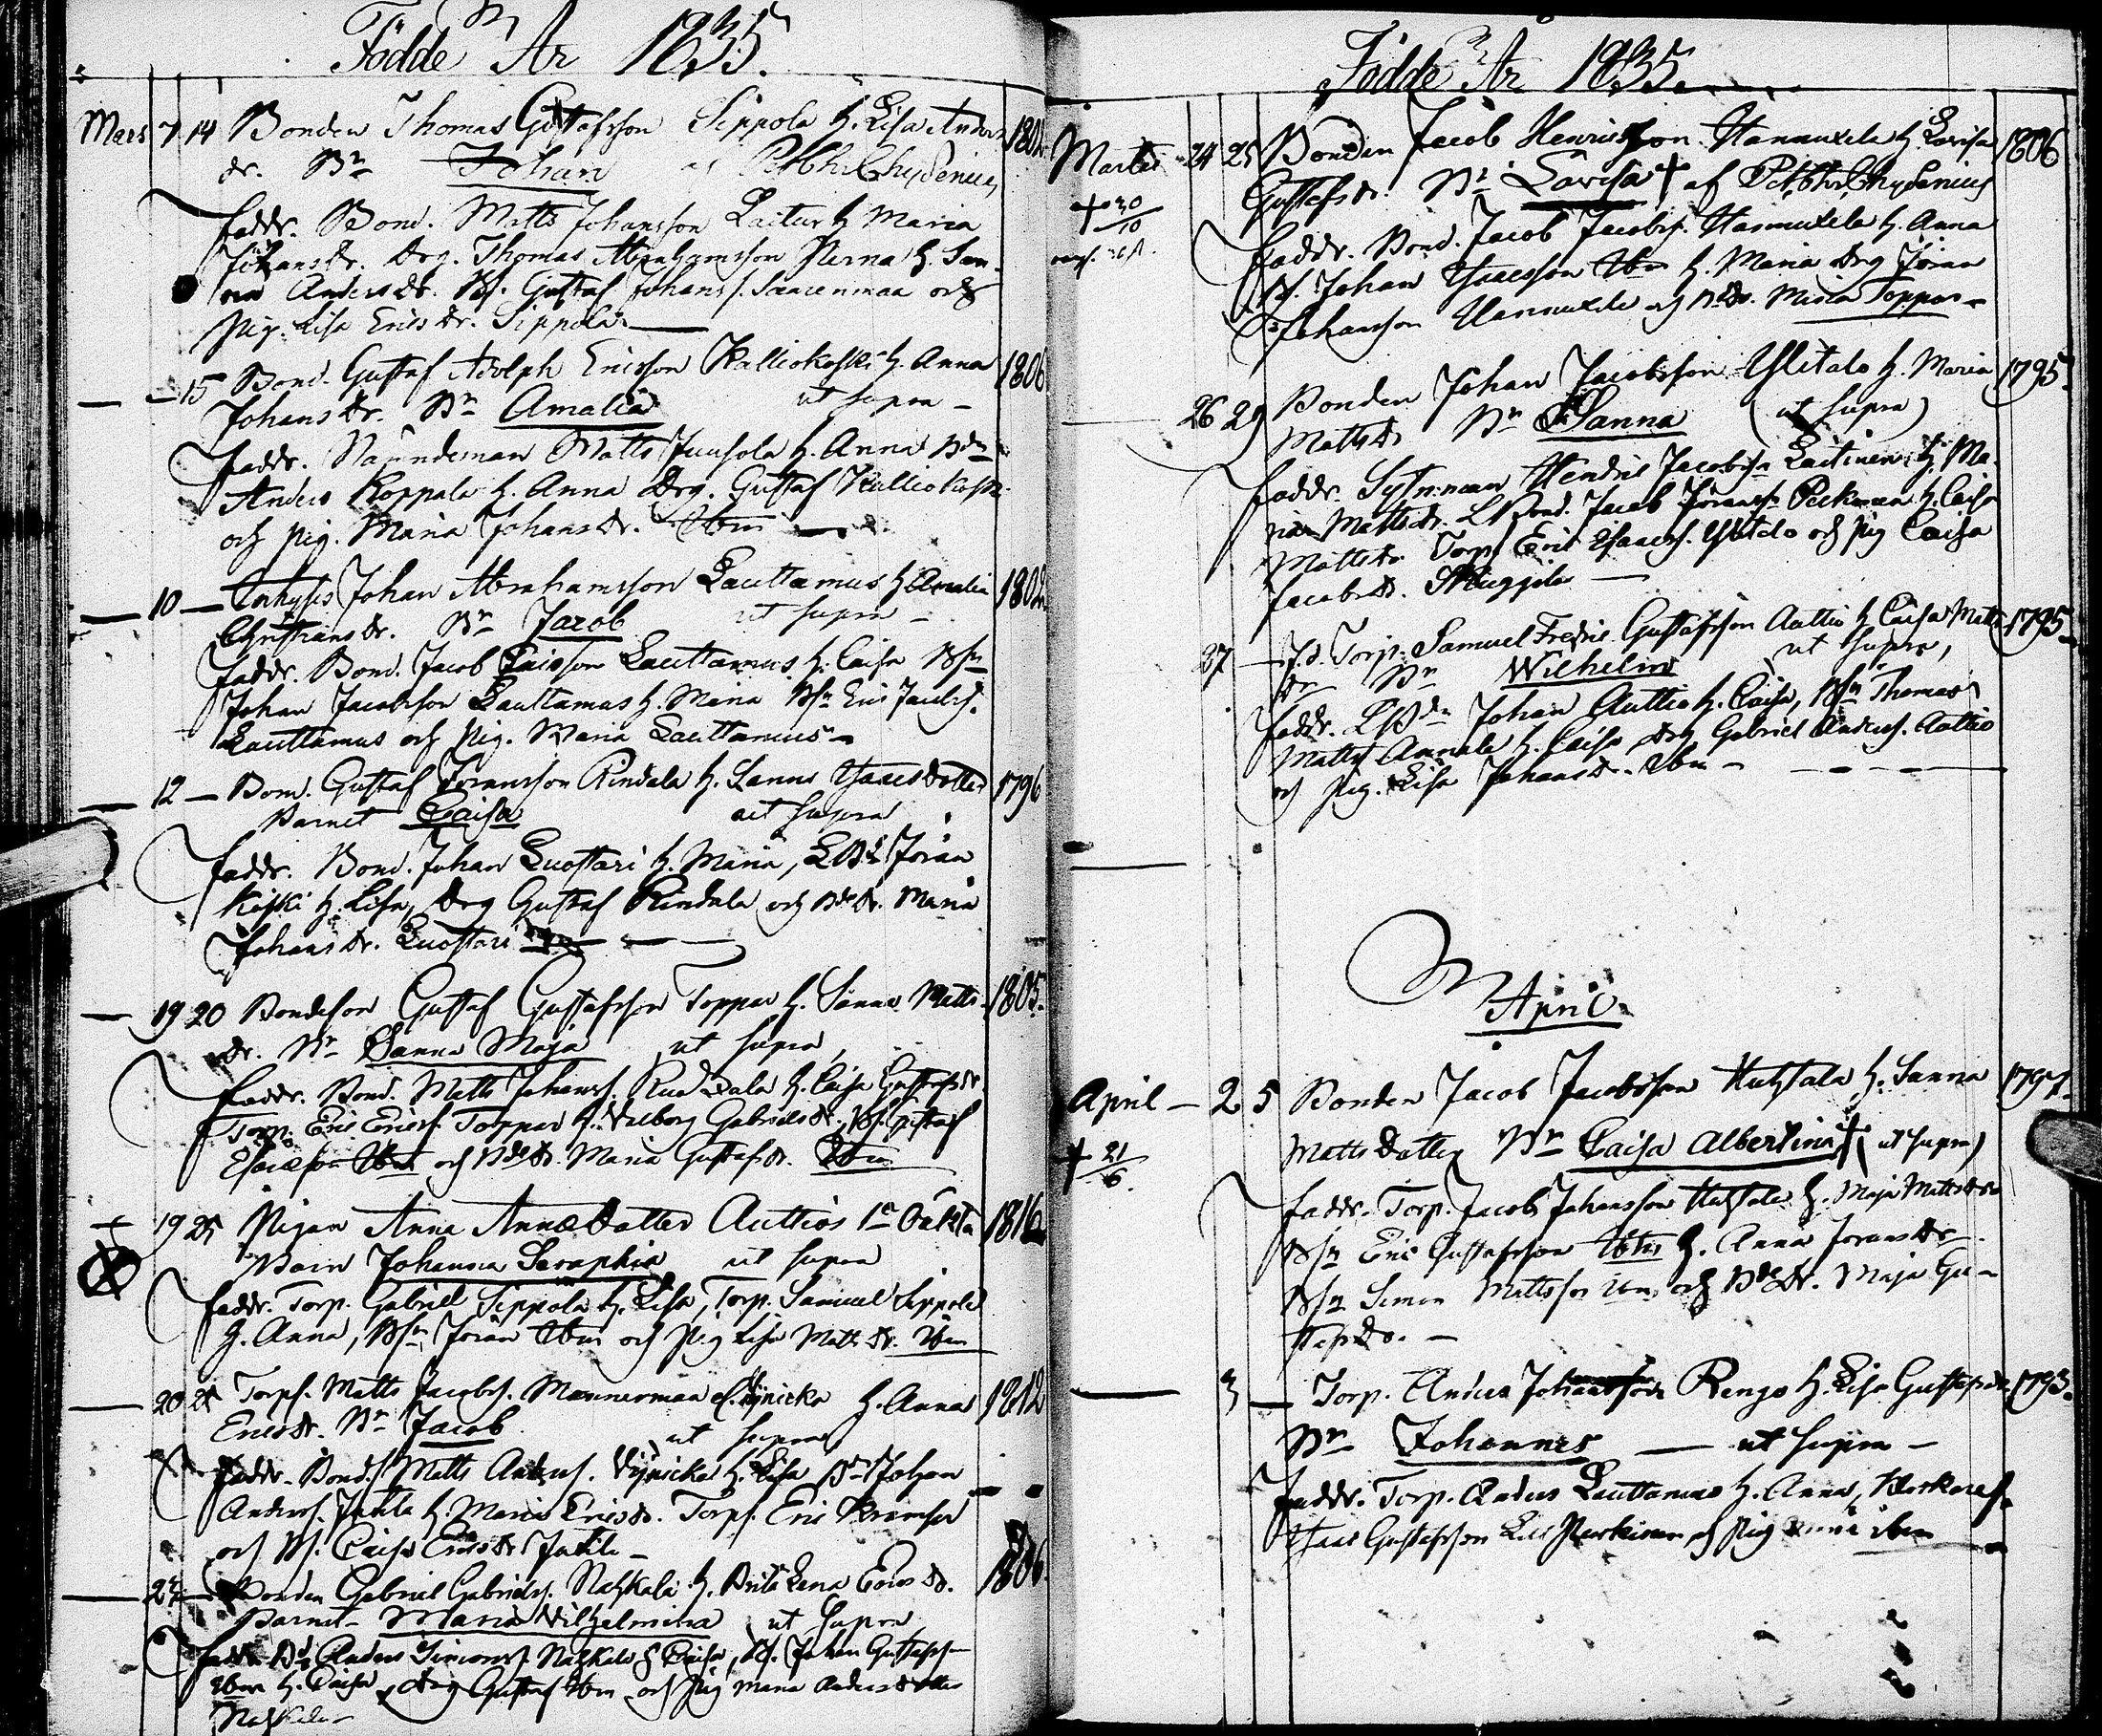 Födde År 1835.
Mars 7 14 Bonden Thomas Gustafsson Sippola h. Lisa Anders 1802
dr. Bn Johan af Chydenius
faddr. Bond. Matts Johansson h. Maria
Johansdr. Drg. Thomas Abrahamsson Perna h. San
na Andersdr. Bs. Gustaf Johanss. Saarenmaa och
Pig. Lisa Ericsdr. Sippola
— 15 Bond. Gustaf Adolph Ericsson Kalliokoski h. Anna 1806
Johansdr. Bn Amalia ut supra —
faddr. Nämndeman Matts Juusola h. Anna Bdn
Anders Koppala h. Anna Drg. Gustaf Kalliokoski
och pig. Maria Johansdr. Ibm
— 10 — Johan Abrahamsson Lauttamus h. Amalia 1802
Christiansdr. Bn Jacob ut supra —
faddr. Bond. Jacob Lauttamus h. Caisa Bsn
Johan Jacobsson Lauttamus h. Maria Bsn Eric Jacobs.
Lauttamus och pig. Maria Lauttamus —
— 12 — Bond. Gustaf Göransson Rindala h. Sanna Isaacsdotter 1796
Barnet Caisa ut supra
faddr. Bond. Johan Luostari h. Maria, LBd Jöran
Koski h. Lisa, Drg Gustaf Rindala och Bdedr. Maria
Johansdr. Luostari
— 19 20 Bondeson Gustaf Gustafsson Toppar h. Sanna Matts 1805.
dr. Bn Sanna Maja ut supra
faddr. Bond. Matts Johanss. Ruudala h. Caisa Gustafsdr.
Torp. Eric Ericss. Toppar h. Valborg Gabrielsdr, Bs. Gustaf
Ibm och Bdedr. Maria Gustafsdr. Ibm
+ 19 25 Pigan Anna Annædotter Auttios 1a Oäkta 1816
Barn Johanna Seraphia ut supra
faddr. Torp. Gabriel Sippola h. Lisa, Torp. Samuel Sippola
h. Anna, Bsn Jöran Ibm och Pig Lisa Mattsdr. Ibm
— 20 25 Torps. Matts Jacobss. Mannermaa h. Anna 1812
Ericsdr. Bn Jacob ut supra
faddr. Bond. Matts Anderss. h. Lisa Johan
Anderss. Jutila h. Maria Ericsdr. Torps. Eric
och Caisa Ericsdr Jutila —
— 22 — Bonden Gabriel Gabrielss. Nahkala h. Brita Lena Ericsdr. 1806.
Barnet — Maria Vilhelmina ut supra
faddr. Bd Anders Simonss. Nahkala h. Caisa, Bs. Johan Gustafsson
Ibm h. Caisa, Drg Gustaf Ibm och Pig Maria Andersdotter
Nahkala
Födde År 1835.
Martii 24 25 Bonden Jacob Henricsson Hannuxela h. Lovisa 1806
+ 30/10 Gustafsdr. Bn Lovisa + af Chydenius
faddr. Bond. Jacob Jacobss. Hannuxela h. Anna
Bs. Johan Isacsson Ibm h. Maria Drg Jöran
Johansson Hannuxela och Bdedr. Maria Toppar —
26 29 Bonden Johan Jacobsson Ylitalo h. Maria 1795.
Mattsdr Bn Sanna (ut supra)
faddr. Sytninman Hendric Jacobsson Laitinen h. Ma
ria Mattsdr. LBond. Jacob Jöranss. h. Caisa
Mattsdr Torp. Eric Isaacss. Ylitalo och pig Caisa
Jacobsdr.
27 — Torp. Samuel Fredric Gustafsson Auttio h. Caisa Matts 1795
dr Bn Wilhelm ut supra,
faddr. LBdn Johan Auttio h. Caisa, Bsn Thomas
Mattss. Annala h. Caisa, Drg Gabriel Anderss. Auttio
och Pig. Lisa Johansdr. Ibm —
April
April — 2 5 Bonden Jacob Jacobsson Huhtala h. Sanna 1797
+ 21/6. Mattsdotter Bn Caisa Albertina + (ut supra)
faddr. Torp. Jacob Johansson Huhtala h. Maja Mattsdr
Bsn Eric Gustafsson Ibm h. Anna Joransdr
Bsn Simon Mattsson Ibm och Bdedr. Maja Gu-
stafsdr. —
— 3 — Torp. Anders Johansson Rengo h. Lisa Gustafsdr 1793.
Bn Johannes — ut supra —
faddr. Torp. Anders Lauttamus h. Anna,
Isaac Gustafsson och Pig Anna ibm